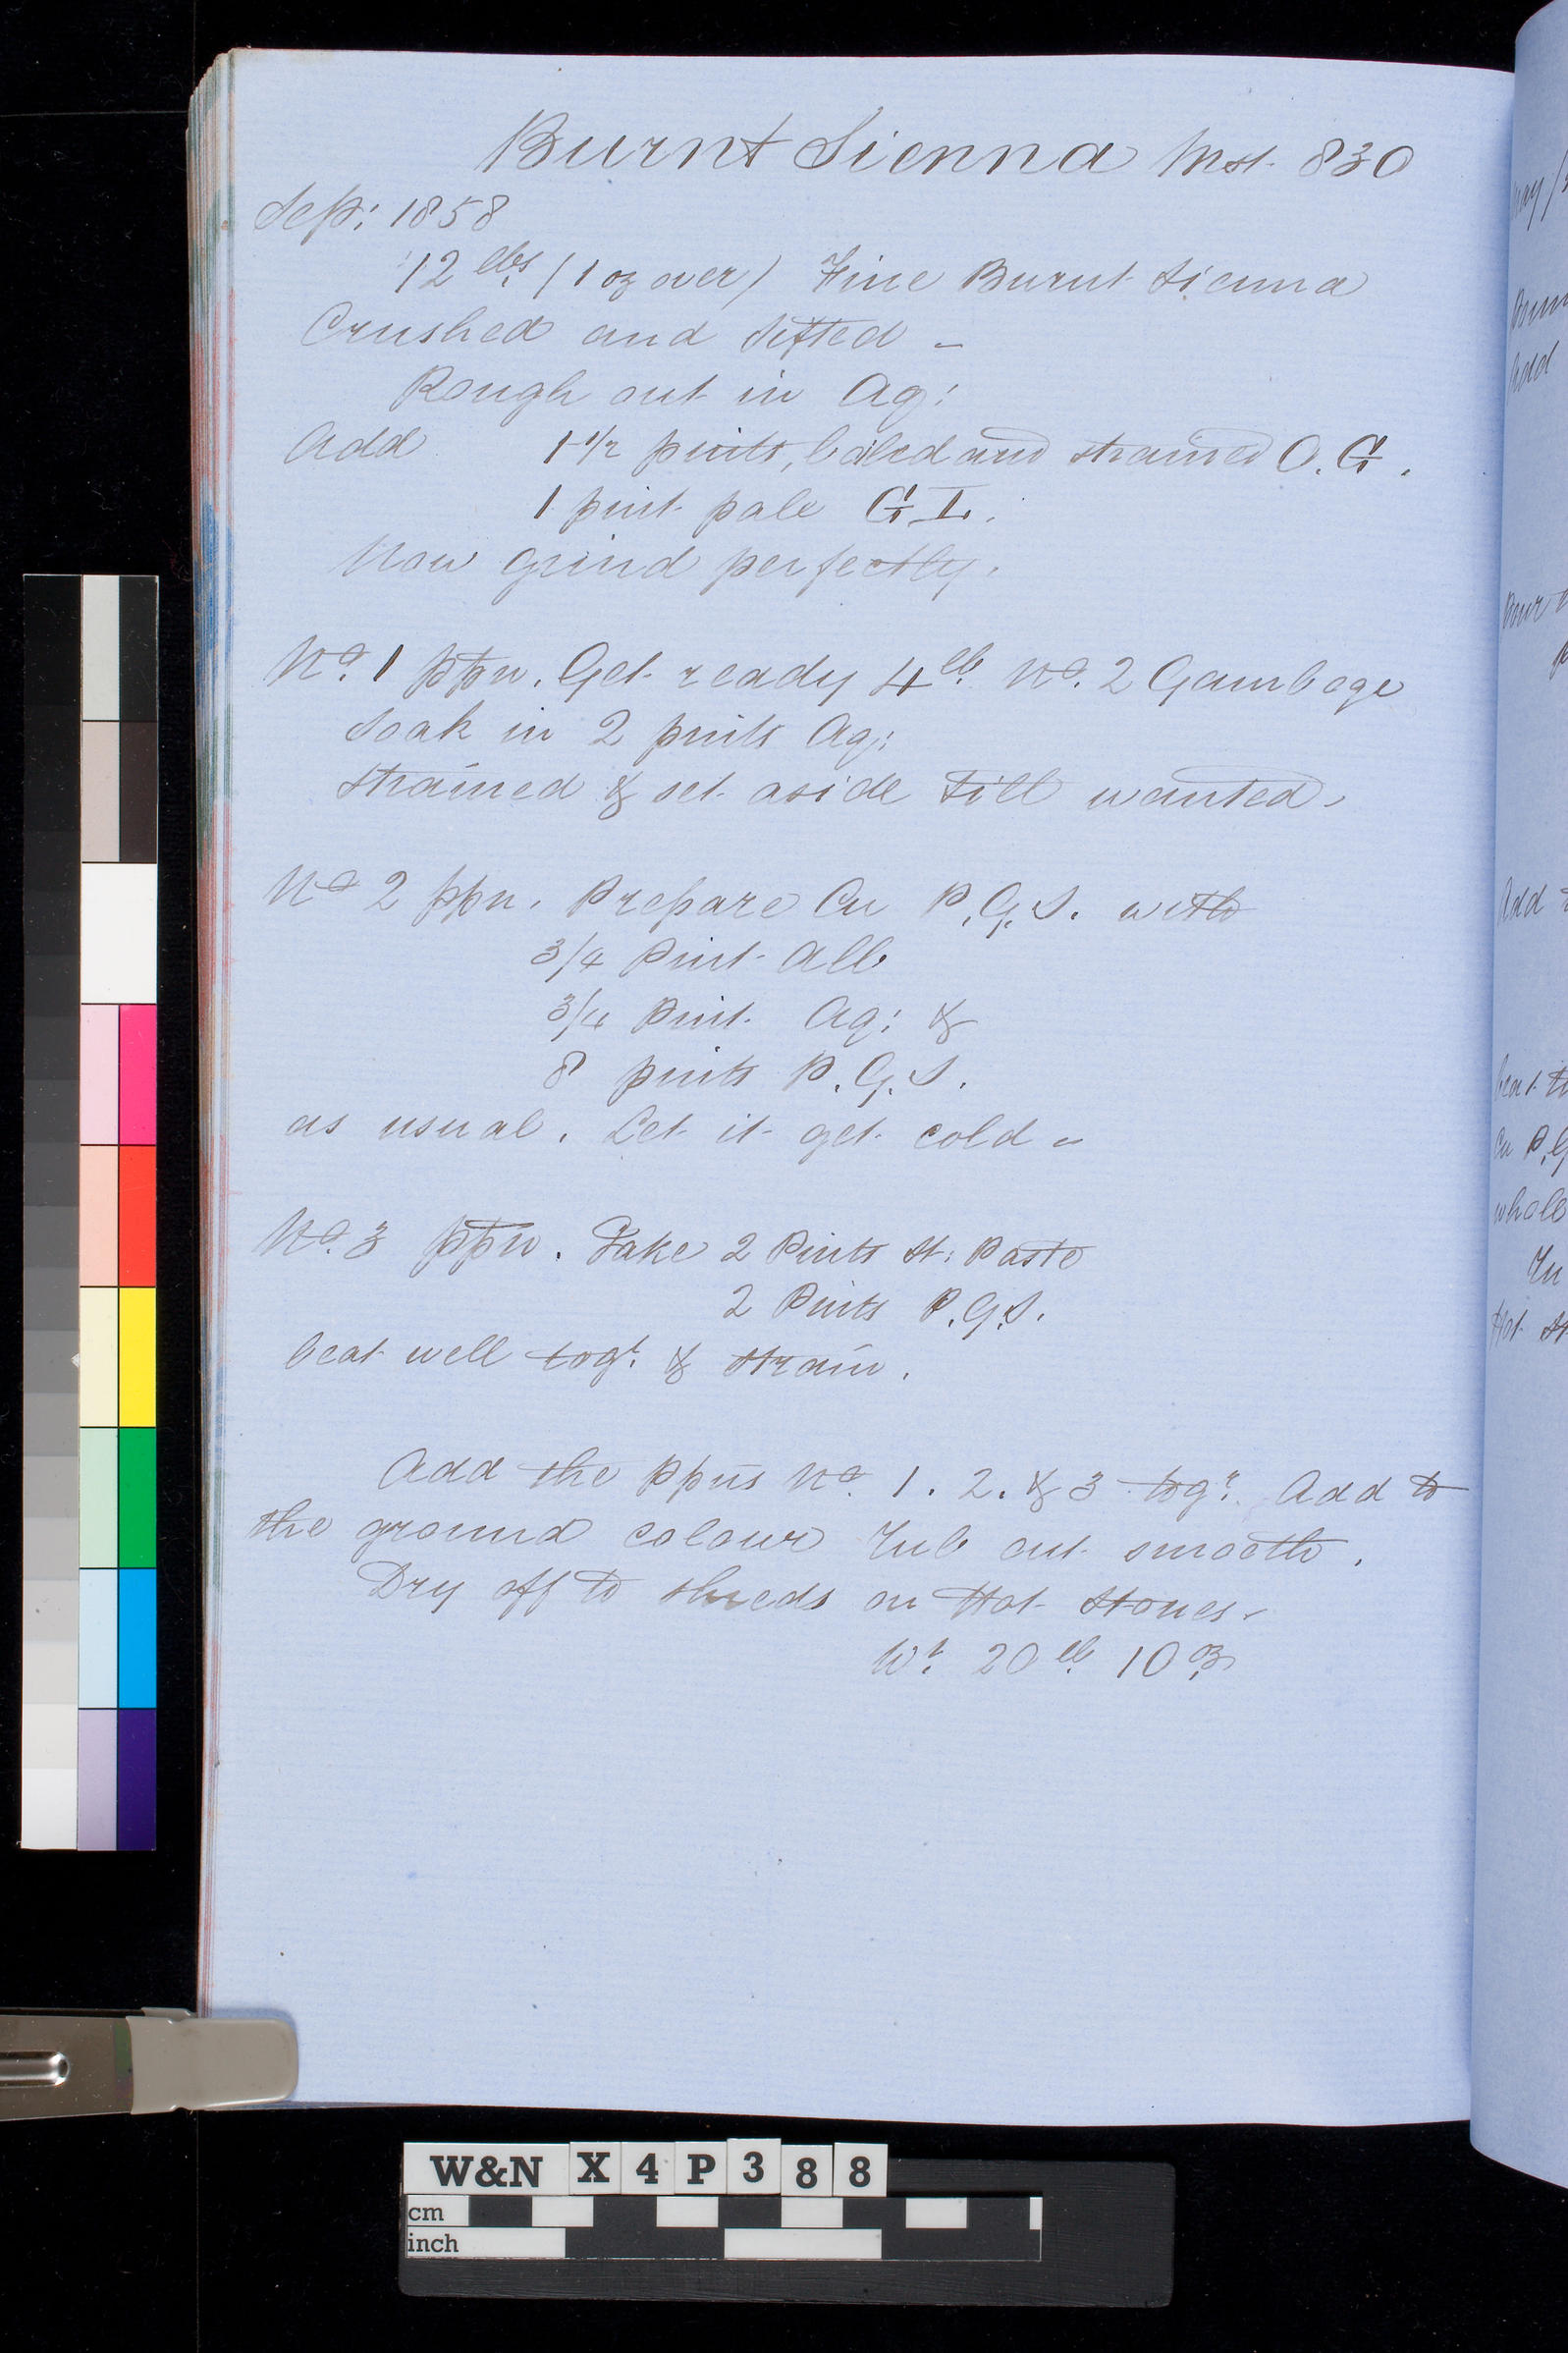 Burnt Sienna Mst. 830
Sep: 1858
12 lbs (1 oz over) Fine Burnt Sienna
Crushed and Sifted –
Rough out in Aq:
Add 1 1/2 pints, boiled and strained O.G.
1 pint pale G I.
Now grind perfectly.
No. 1 ppn. Get ready 4 lb. No. 2 Gamboge
soak in 2 pints Aq:
strained & set aside till wanted.
No 2 ppn. Prepare Cu P.G.S. with
3/4 Pint Alb
3/4 Pint Aq: &
8 pints P.G.S.
as usual. Let it get cold –
No. 3 ppn. Take 2 Pints St: Paste
2 Pints P.G.S.
beat well togr. & strain.
Add the ppns No. 1. 2. & 3 togr. Add to
the ground colour Rub out smooth.
Dry off to shreds on Hot Stones.
Wt. 20 lb. 10 oz
May
Add
beat
Cu P.G
whole
Hot St
W&N X 4 P 3 8 8
cm
inch